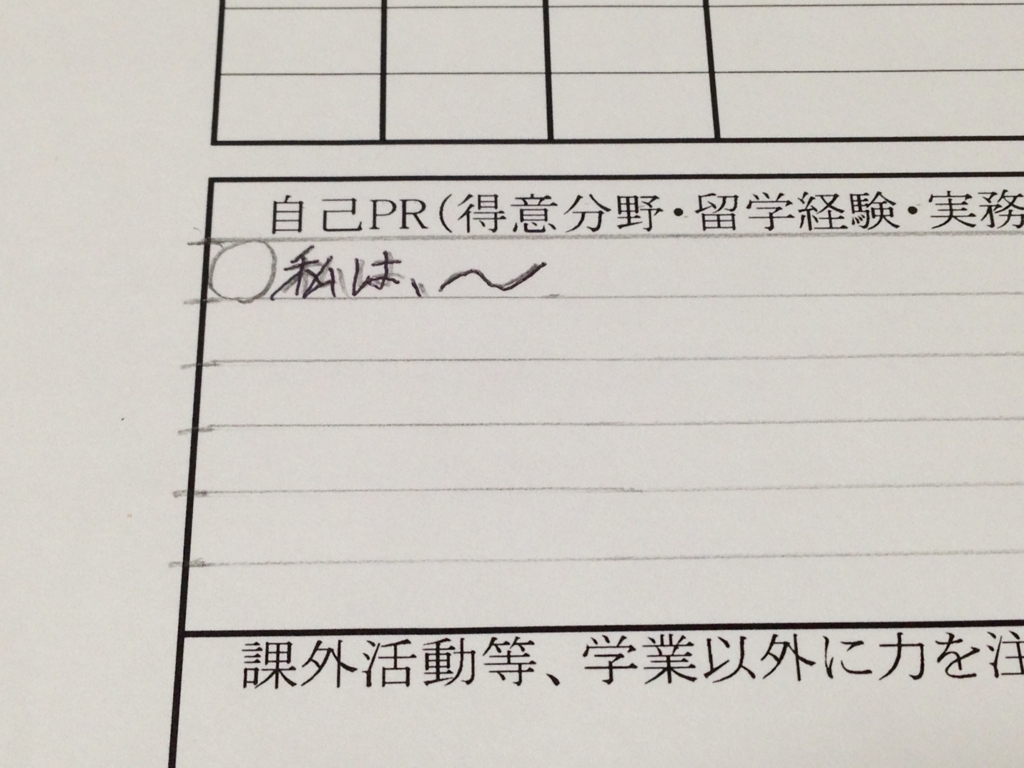 自己PR(得意分野・留学経験・実務
私は、〜
課外活動等、学業以外に力を注